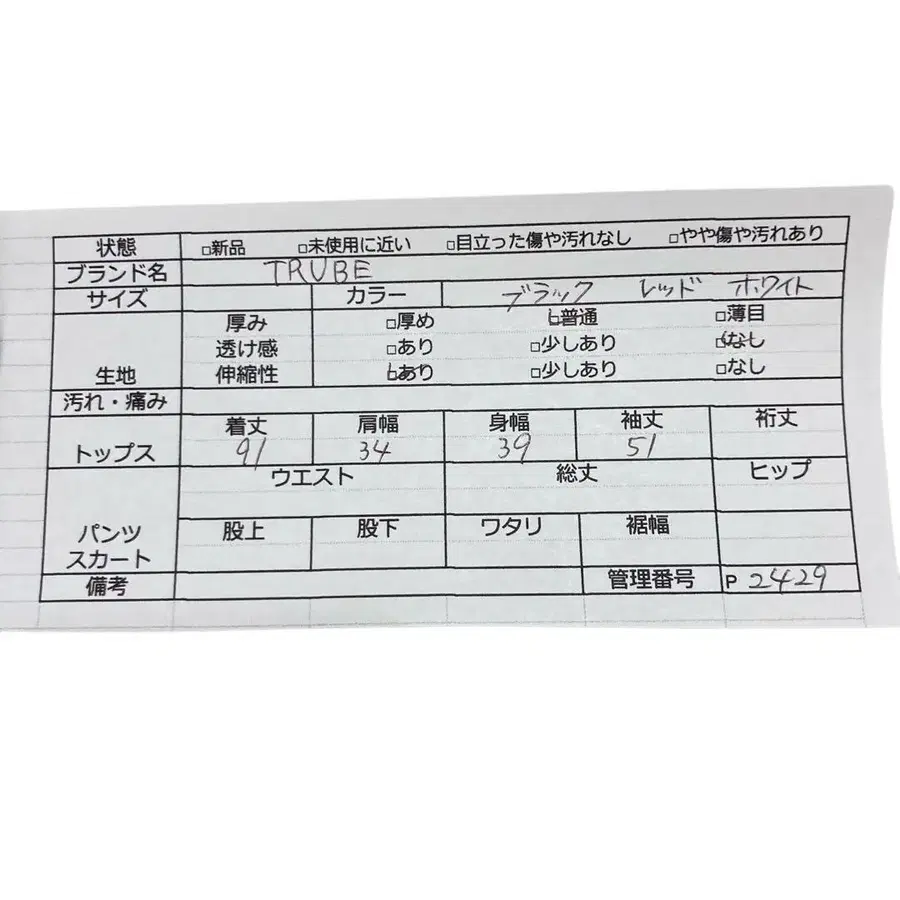 状態 □新品 □未使用に近い □目立った傷や汚れなし □やや傷や汚れあり
ブランド名 TRUBE
サイズ カラー ブラック レッド ホワイト
厚み □厚め □普通 □薄目
透け感 □あり □少しあり □なし
生地 伸縮性 □あり □少しあり □なし
汚れ・痛み
着丈 肩幅 身幅 袖丈 裄丈
トップス 91 34 39 51
ウエスト 総丈 ヒップ
パンツ 股上 股下 ワタリ 裾幅
スカート
備考 管理番号 P 2429